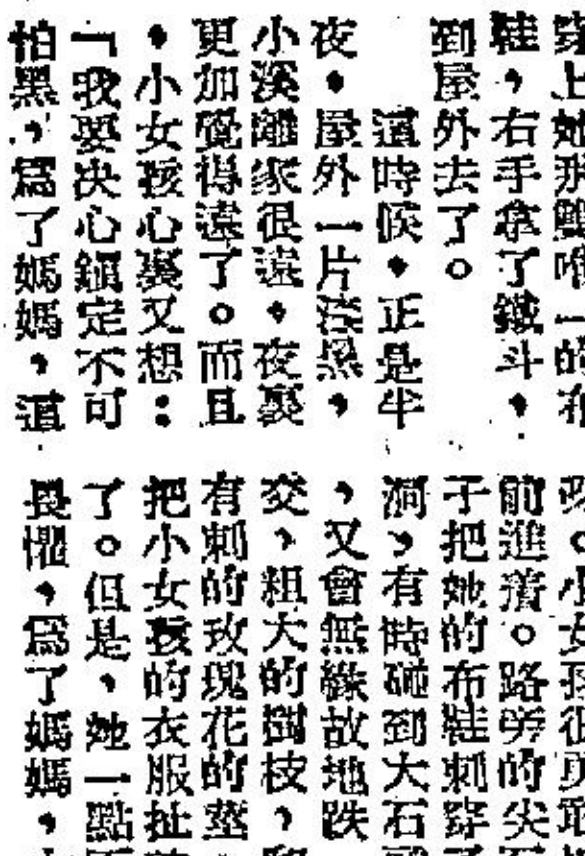 穿上她那雙唯一的布
鞋，右手拿了鐵斗，
到屋外去了。
這時候，正是半
夜，屋外一片漆黑，
小溪離家很遠，夜裏
更加覺得遠了。而且
，小女孩心裏又想：
「我要決心鎭定不可
怕黑，爲了媽媽，這
前進着。路旁的尖
子把她的布鞋刺穿
洞，有時碰到大石
，又會無緣故地跌
交，粗大的樹枝，
有刺的玫瑰花的莖
把小女孩的衣服扯
了。但是，她一點
畏懼，爲了媽媽，